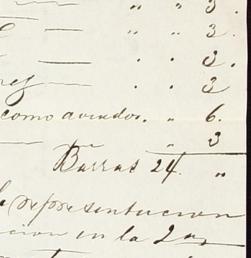 " " 3.
" " 3.
" " 3.
" " 3
como aviados. " 6.
" 3
Barras 24. "
representacion
cion en la 2a